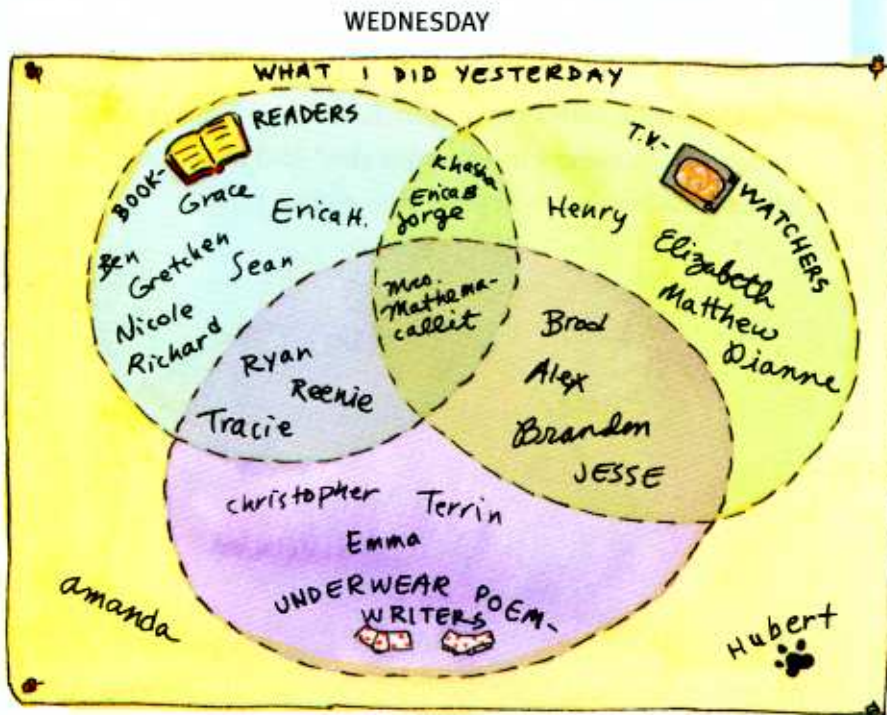 WEDNESDAY
WHAT I DID YESTERDAY
BOOK-READERS
Grace
Erica H.
Ben
Gretchen
Sean
Nicole
Richard
Khasha
Erica B
Jorge
T.V.-WATCHERS
Henry
Elizabeth
Matthew
Dianne
Mrs.
Mathema-
callit
Ryan
Reenie
Tracie
Brad
Alex
Brandon
JESSE
Christopher
Terrin
Emma
UNDERWEAR POEM-
WRITERS
amanda
Hubert